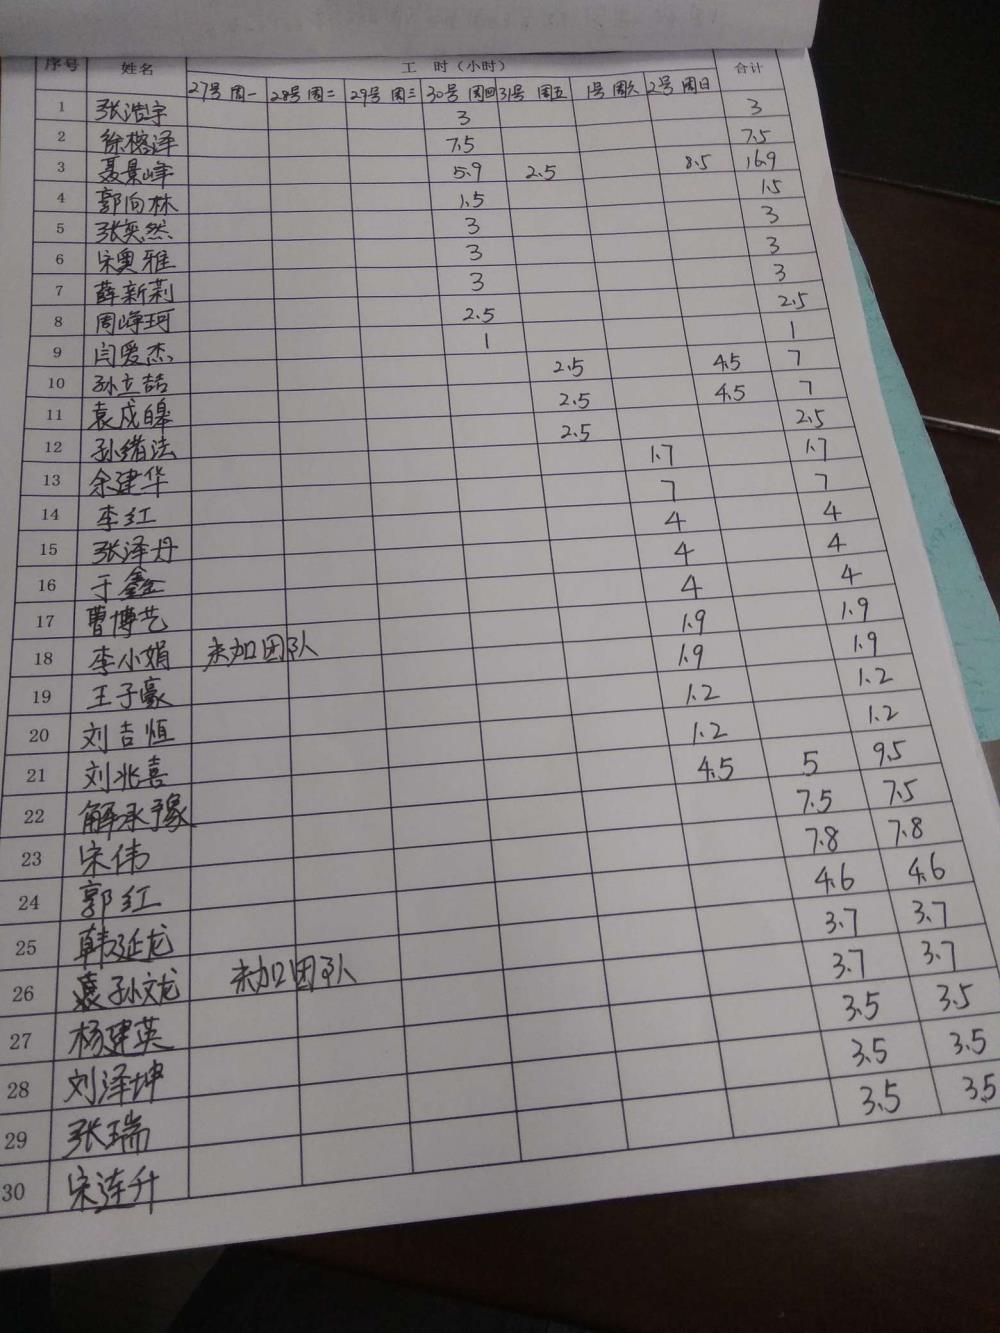 序号 姓名 工 时（小时） 合计
27号 周一 28号 周二 29号 周三 30号 周四 31号 周五 1号 周六 2号 周日
1 张浩宇 3 3
2 徐榕泽 7.5 7.5
3 聂景峰 5.9 2.5 8.5 16.9
4 郭向林 1.5 1.5
5 张奕然 3 3
6 宋奥雅 3 3
7 薛新莉 3 3
8 周峥珂 2.5 2.5
9 闫爱杰 1 1
10 孙立喆 2.5 4.5 7
11 袁成皞 2.5 4.5 7
12 孙绪法 2.5 2.5
13 余建华 1.7 1.7
14 李红 7 7
15 张泽丹 4 4
16 于鑫 4 4
17 曹博艺 4 4
18 李小娟 未加团队 1.9 1.9
19 王子豪 1.9 1.9
20 刘吉恒 1.2 1.2
21 刘兆喜 1.2 1.2
22 解承豫 4.5 5 9.5
23 宋伟 7.5 7.5
24 郭红 7.8 7.8
25 韩延龙 4.6 4.6
26 袁孙文龙 未加团队 3.7 3.7
27 杨建英 3.7 3.7
28 刘泽坤 3.5 3.5
29 张瑞 3.5 3.5
30 宋连升 3.5 3.5